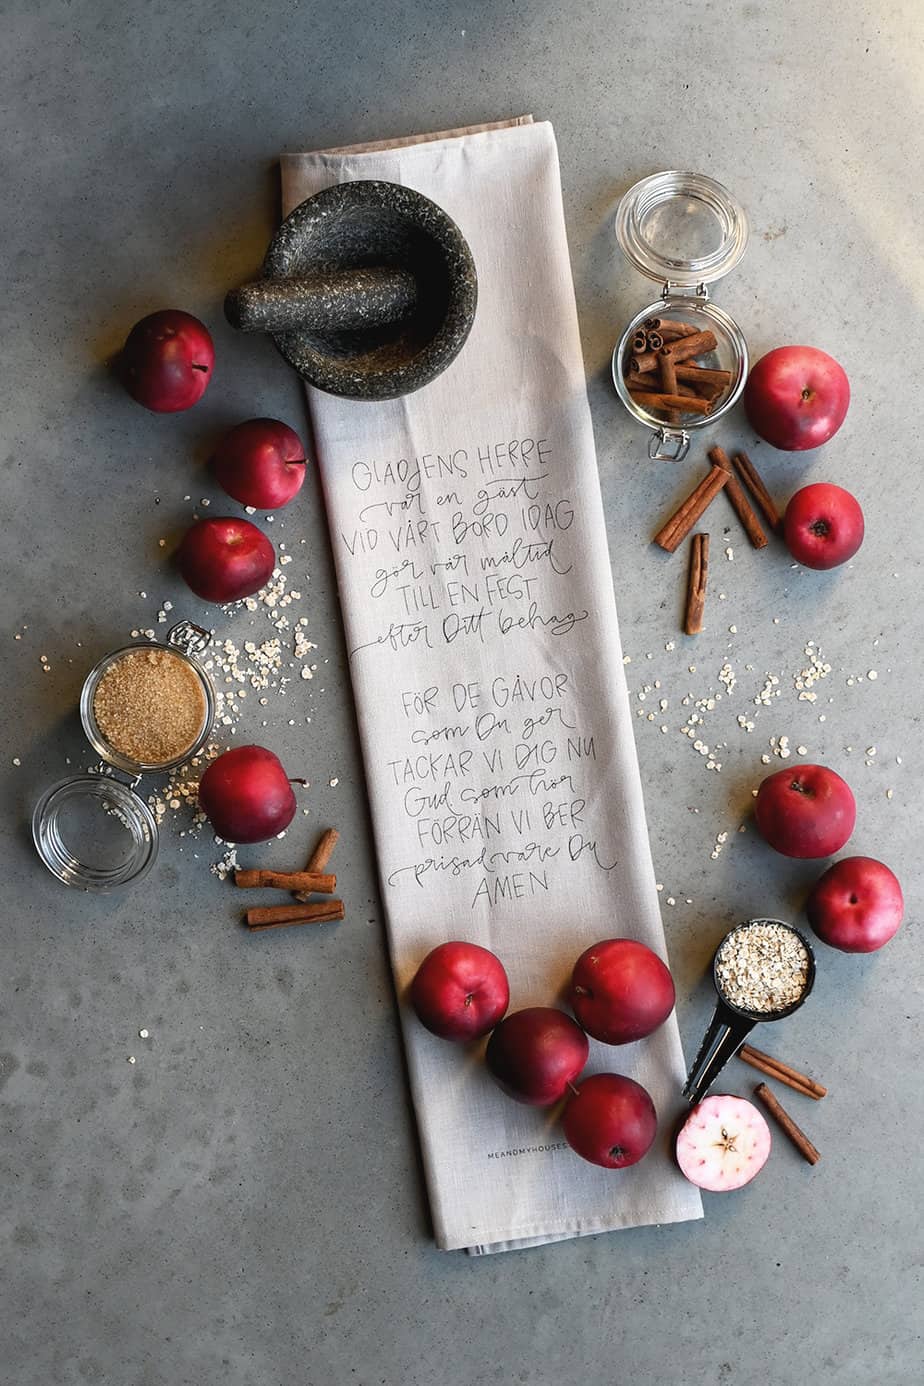 GLÄDJENS HERRE
var en gäst
VID VÅRT BORD IDAG
gör vår måltid
TILL EN FEST
efter Ditt behag
FÖR DE GÅVOR
som Du ger
TACKAR VI DIG NU
Gud som hör
FÖRRÄN VI BER
prisad vare Du
AMEN
MEANDMYHOUSES